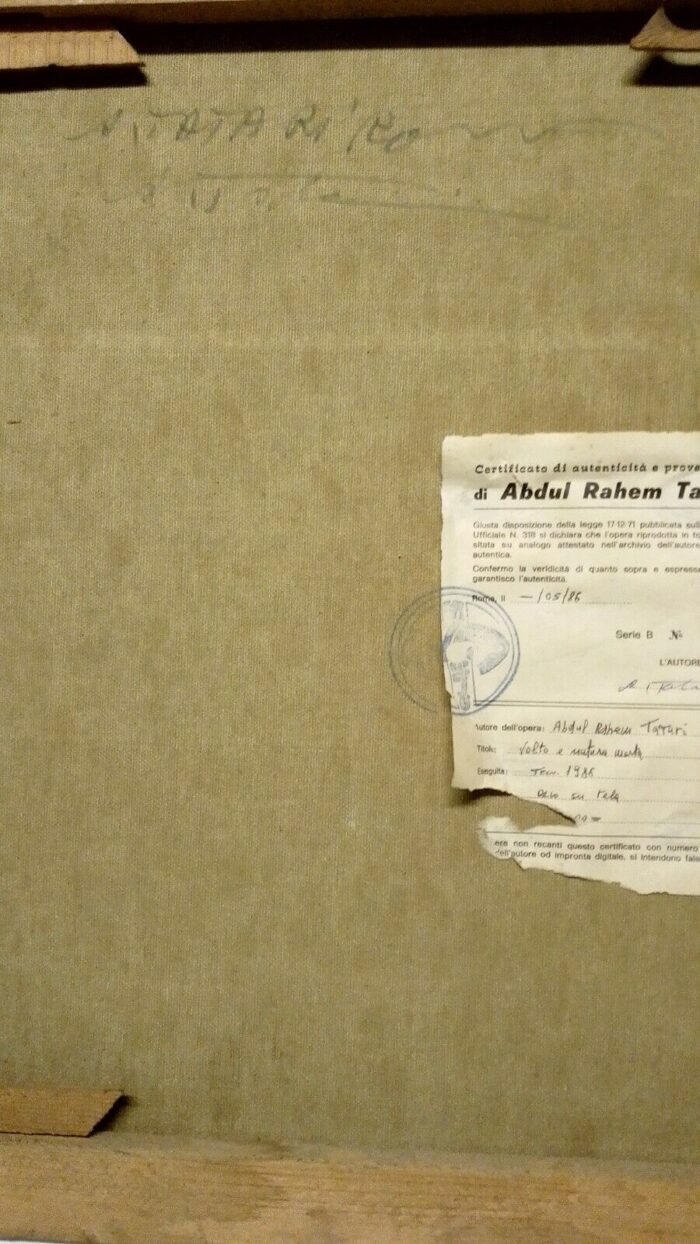 A. TATARI
Certificato di autenticità e prove
di Abdul Rahem Ta
Giusta disposizione della legge 17-12-71 pubblicata sul
Ufficiale N. 318 si dichiara che l'opera riprodotta in fo
sitata su analogo attestato nell'archivio dell'autore
autentica.
Confermo la veridicità di quanto sopra e espress
garantisco l'autenticità.
Roma, il —/05/86
Serie B N°
L'AUTORE
Autore dell'opera: Abdul Rahem Tatari
Titolo: Volto e natura morta
Eseguita: 1986
Olio su tela
ere non recanti questo certificato con numero
dell'autore od impronta digitale, si intendono false